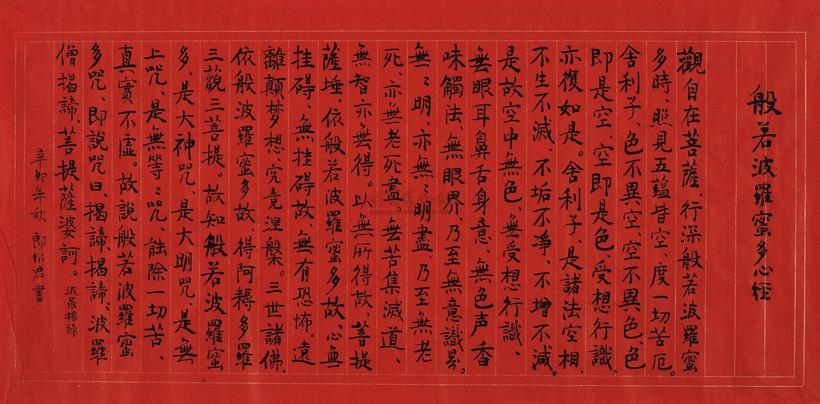 般若波羅蜜多心经
觀自在菩薩、行深般若波羅蜜
多時、照見五蘊皆空、度一切苦厄。
舍利子、色不異空、空不異色、色
即是空、空即是色、受想行識、
亦復如是。舍利子、是諸法空相、
不生不滅、不垢不净、不增不减。
是故空中無色、無受想行識、
無眼耳鼻舌身意、無色声香
味觸法、無眼界、乃至無意識界。
無〻明、亦無〻明盡、乃至無老
死、亦無老死盡。無苦集滅道、
無智亦無得。以無所得故、菩提
薩埵、依般若波羅蜜多故、心無
挂碍、無挂碍故、無有恐怖、遠
離顛梦想、究竟涅槃。三世諸佛、
依般波羅蜜多故、得阿耨多羅
三藐三菩提。故知般若波羅蜜
多、是大神咒、是大明咒、是無
上咒、是無等〻咒、能除一切苦、
真實不虚。故說般若波羅蜜
多咒、即說咒曰、揭諦、揭諦、波羅
僧揭諦、菩提薩婆訶。波羅揭諦
辛卯年秋 郎 君書